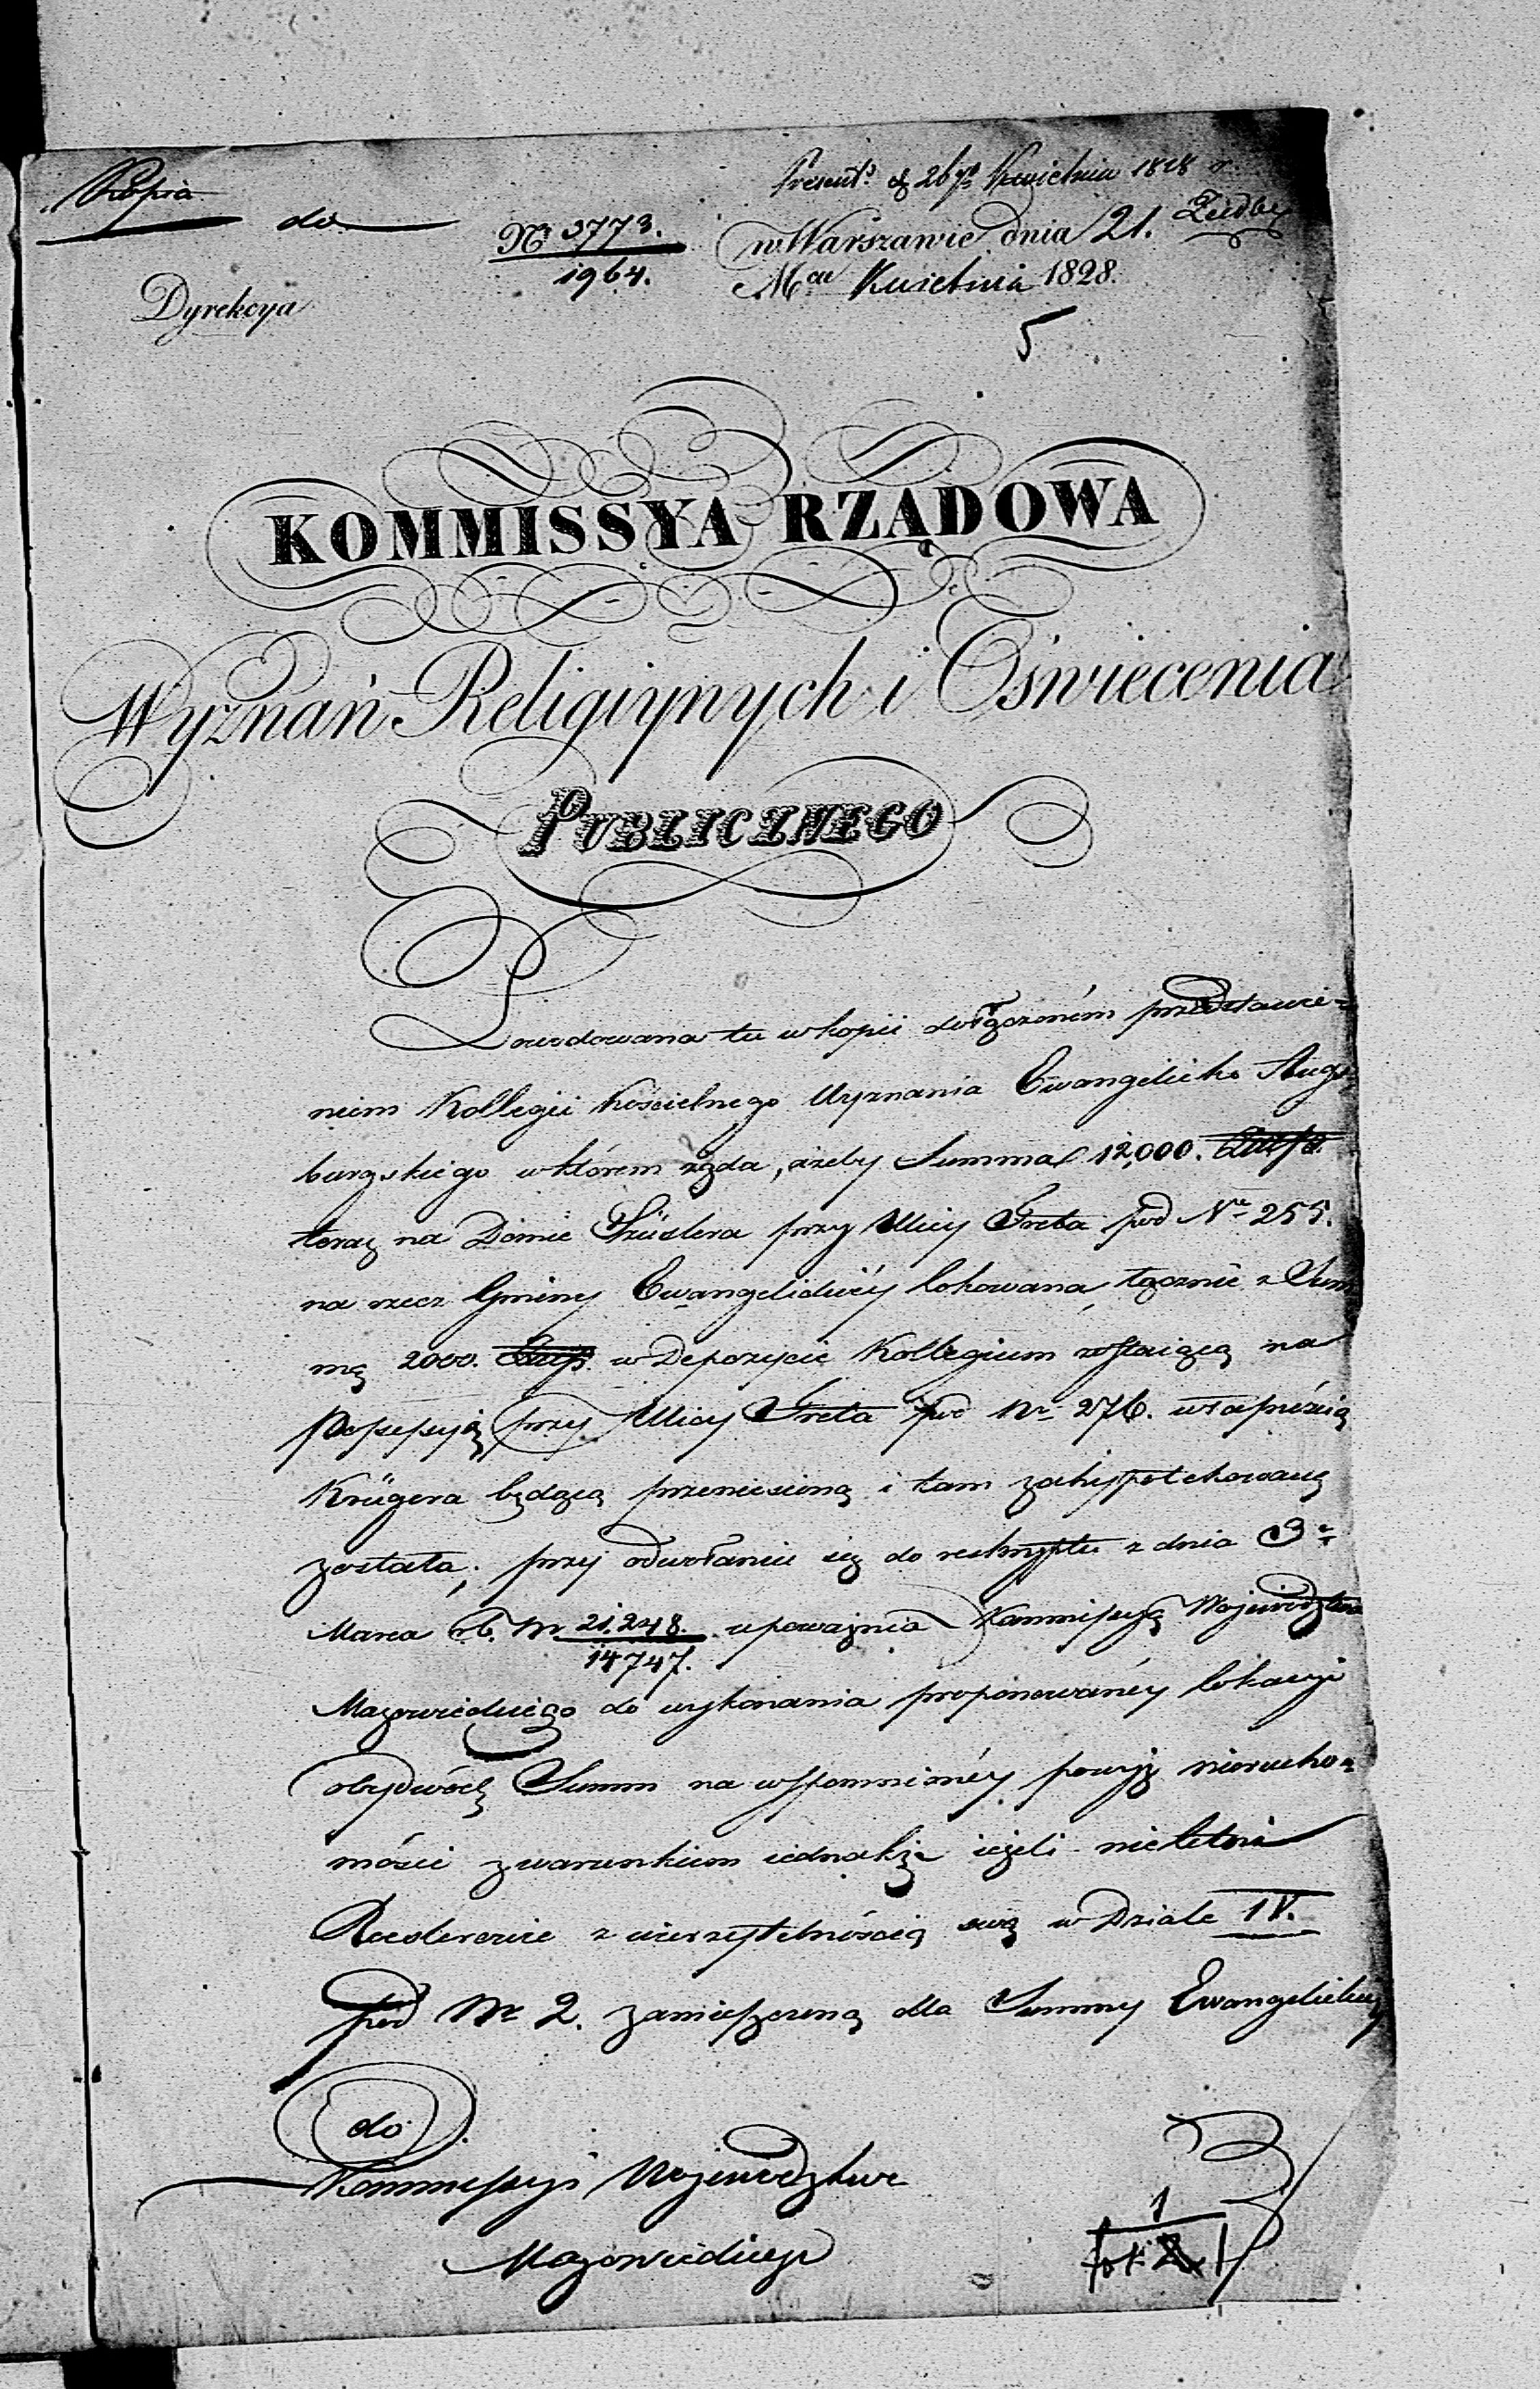 Kopia
do
Dyrekcya
Nr 3773.
1964.
Present. d. 26go Kwietnia 1828 r.
w Warszawie dnia 21.
Mca Kwietnia 1828.
5
KOMMISSYA RZĄDOWA
Wyznań Religiynych i Oświecenia
PUBLICZNEGO
Powodowana tu w kopii dołączoném przedstawie-
niem Kollegii Kościelnego Wyznania Ewangelicko Augs-
burgskiego w którem żąda, ażeby Summa 12,000. Złotp.
teraz na Domie przy Ulicy Freta pod Nr 255.
na rzecz Gminy Ewangelickiéy lokowana, łącznie z Sum
mą 2000. Złotp. w Depozycie Kollegium zostaiącą na
Possessyią przy Ulicy Freta pod Nr 276. własnością
Krügera będącą przeniesioną i tam zahypotekowaną
została; przy odwołaniu się do reskryptu z dnia 3go
Marca rb. Nr 21.248. upoważnia Kommissyą Województwa
14747.
Mazowieckiego do wykonania proponowanéy lokacyi
obydwóch Summ na wspomnionéy powyż nierucho-
mości z warunkiem iednakże ieżeli nieletni
z wierzytelnością swą w Dziale IV.
pod Nr 2. zamieszczoną dla Summy Ewangelickiey
do
Kommissyi Województwa
Mazowieckiego
1